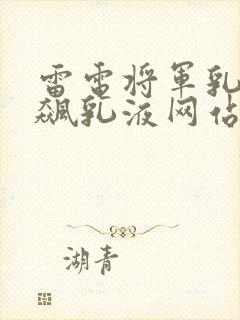 雷电将军乳
飙乳液网站
湖青